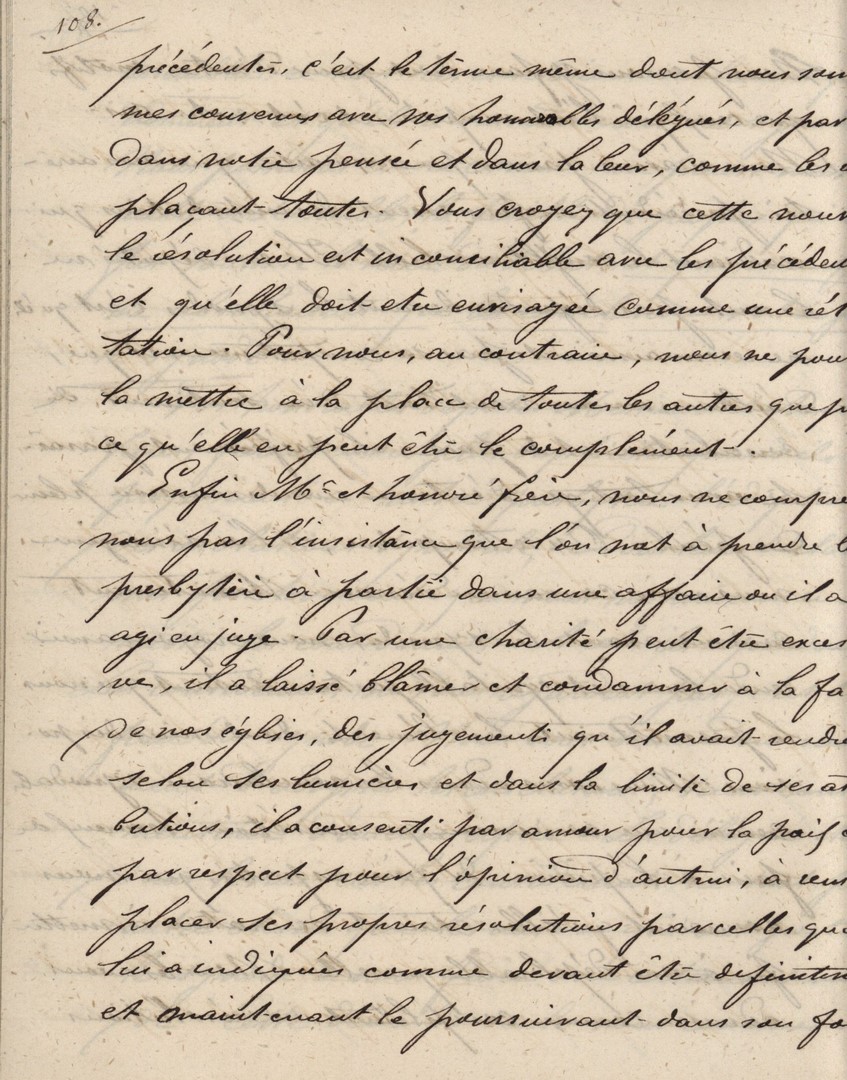 108.
précédentes, c'est le terme même dont nous som
mes convenus avec vos honorables délégués, et par
dans notre pensée et dans la leur, comme les
plaçant toutes. Vous croyez que cette nouv
le résolution est inconciliable avec les précéden
et qu'elle doit etre envisagée comme une rét
tation. Pour nous, au contraire, nous ne pou
la mettre à la place de toutes les autres que p
ce qu'elle en peut être le complément.
Enfin Mr et honoré frère, nous ne compre
nous pas l'insistance que l'on met à prendre l
presbytère à partie dans une affaire ou il a
agi en juge. Par une charité peut être exces
ve, il a laissé blâmer et condamner à la fa
de nos églises, des jugements qu'il avait rendu
selon ses lumières et dans la limite de ses at
butions, il a consenti par amour pour la paix
par respect pour l'opinion d'autrui, à rem
placer ses propres résolutions par celles qu
lui a indiqués comme devant être definitiv
et maintenant le poursuivant dans son fo